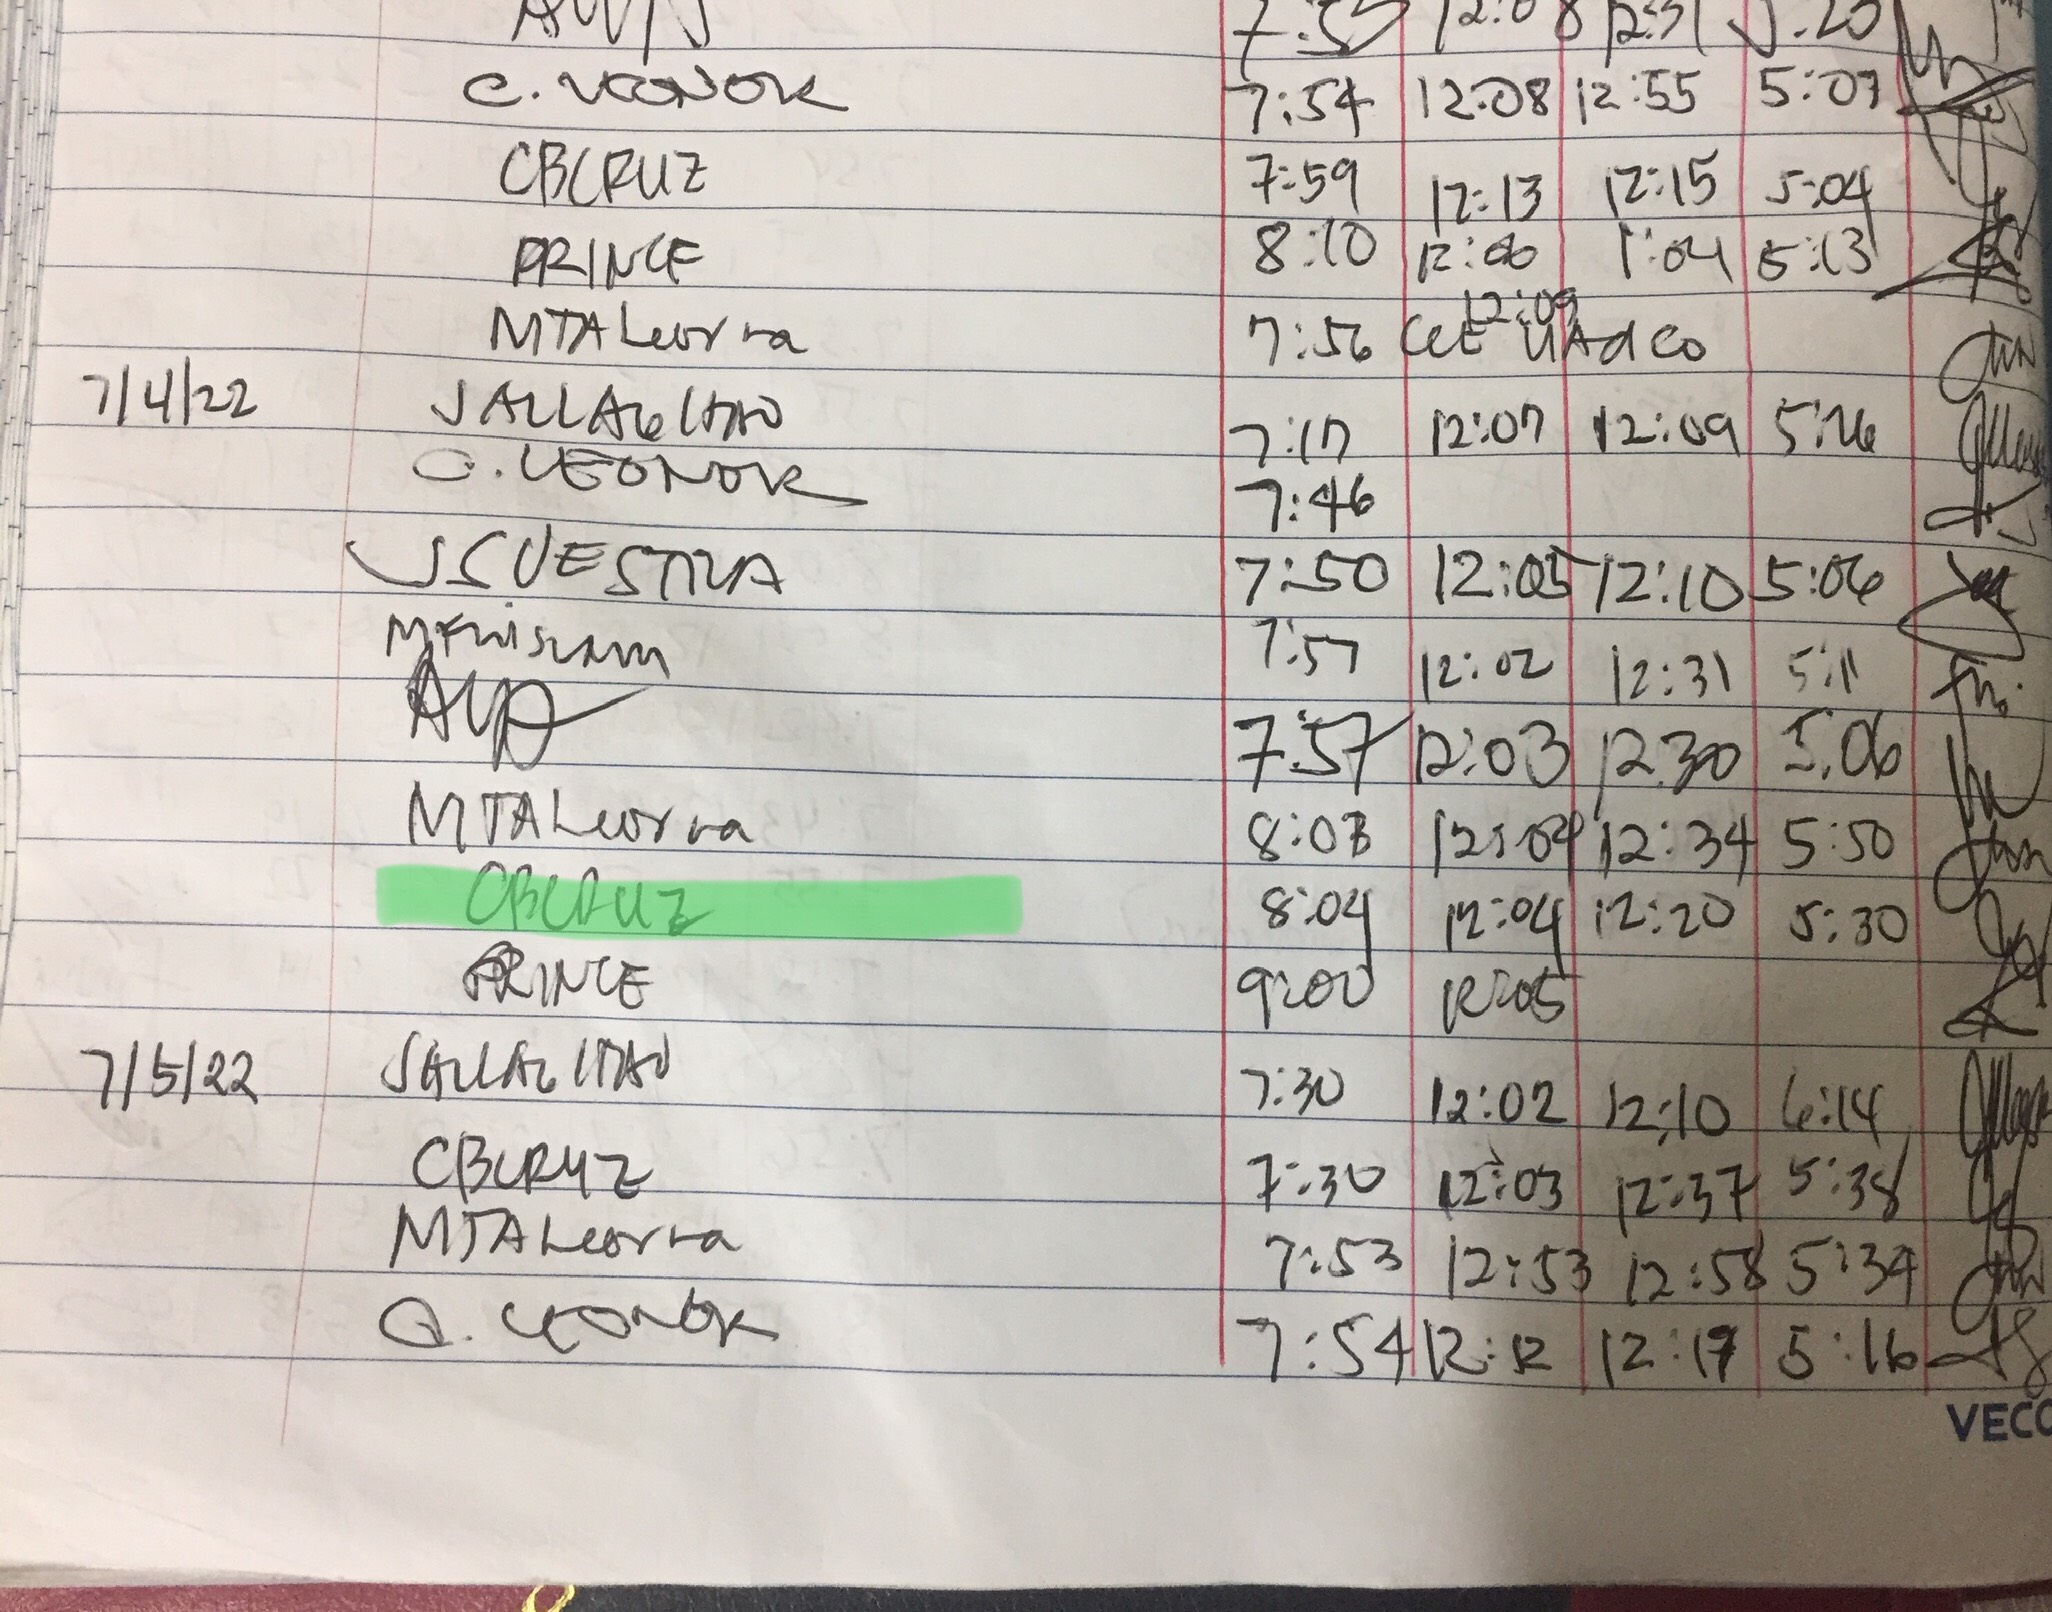 7:55 12:08 12:31 5:20
C. LEONOR 7:54 12:08 12:55 5:07
CBCRUZ 7:59 12:13 12:15 5:04
PRINCE 8:10 12:06 1:04 5:13
12:09
MTALeorna 7:56
7/4/22 JALLAGUITAO 7:17 12:07 12:09 5:26
C. LEONOR 7:46
JSUESTRA 7:50 12:05 12:10 5:06
7:57 12:02 12:31 5:11
7:57 12:03 12:30 5:06
MTALeorna 8:03 12:04 12:34 5:50
CBCRUZ 8:04 12:04 12:20 5:30
PRINCE 9:00 12:05
7/5/22 JALLAGUITAO 7:30 12:02 12:10 6:14
CBCRUZ 7:30 12:03 12:37 5:38
MTALeorna 7:53 12:53 12:58 5:34
C. LEONOR 7:54 12:12 12:17 5:16
VECO